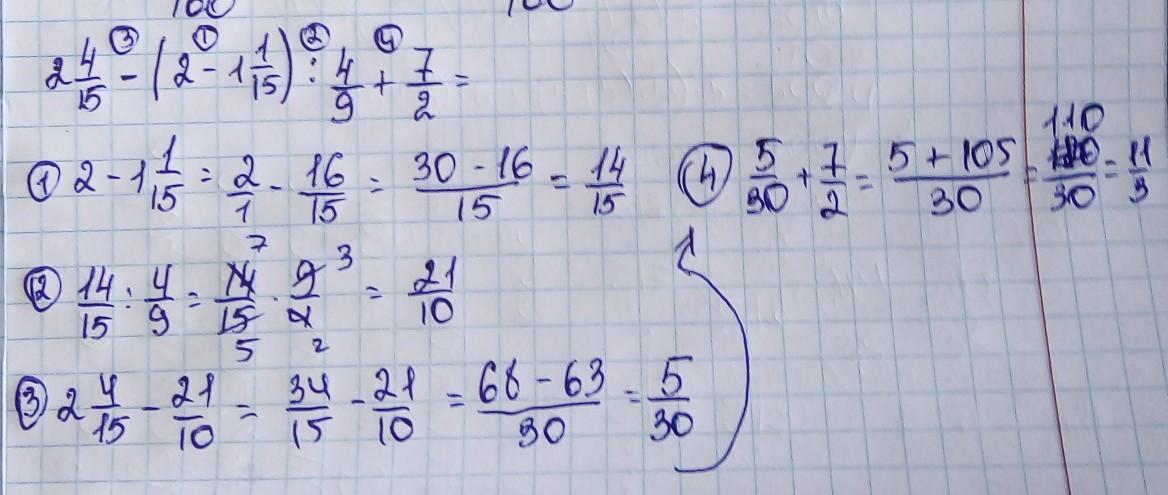 2 4/15 - (2 - 1 1/15) : 4/9 + 7/2 =
③ ① ② ④
① 2 - 1 1/15 = 2/1 - 16/15 = (30 - 16)/15 = 14/15
④ 5/30 + 7/2 = (5 + 105)/30 = 110/30 = 11/3
② 14/15 : 4/9 = 14/15 · 9/4 = 21/10
7 3 5 2
③ 2 4/15 - 21/10 = 34/15 - 21/10 = (68 - 63)/30 = 5/30